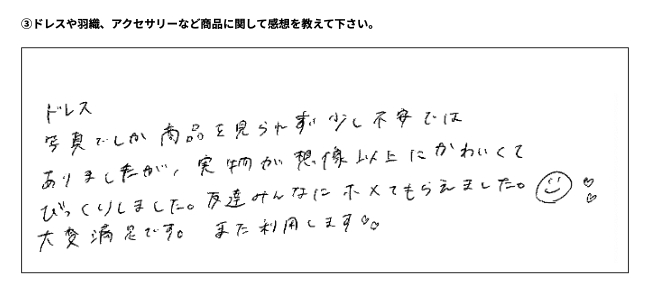 ③ドレスや羽織、アクセサリーなど商品に関して感想を教えて下さい。
ドレス
写真でしか商品を見られず少し不安では
ありましたが、実物が想像以上にかわいくて
びっくりしました。友達みんなにホメてもらえました。
大変満足です。また利用します